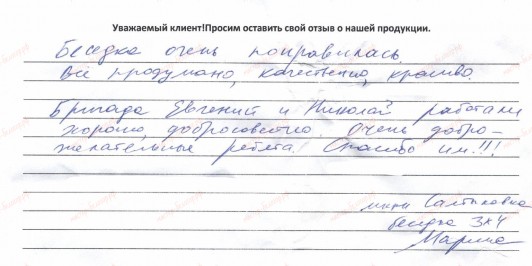 Уважаемый клиент!Просим оставить свой отзыв о нашей продукции.
Беседка очень понравилась.
Все продумано, качественно, красиво.
Бригада Евгений и Николай работали
хорошо, добросовестно. Очень добро-
желательные ребята! Спасибо им!!!
мкрн Салтыковка
беседка 3х4
Марина